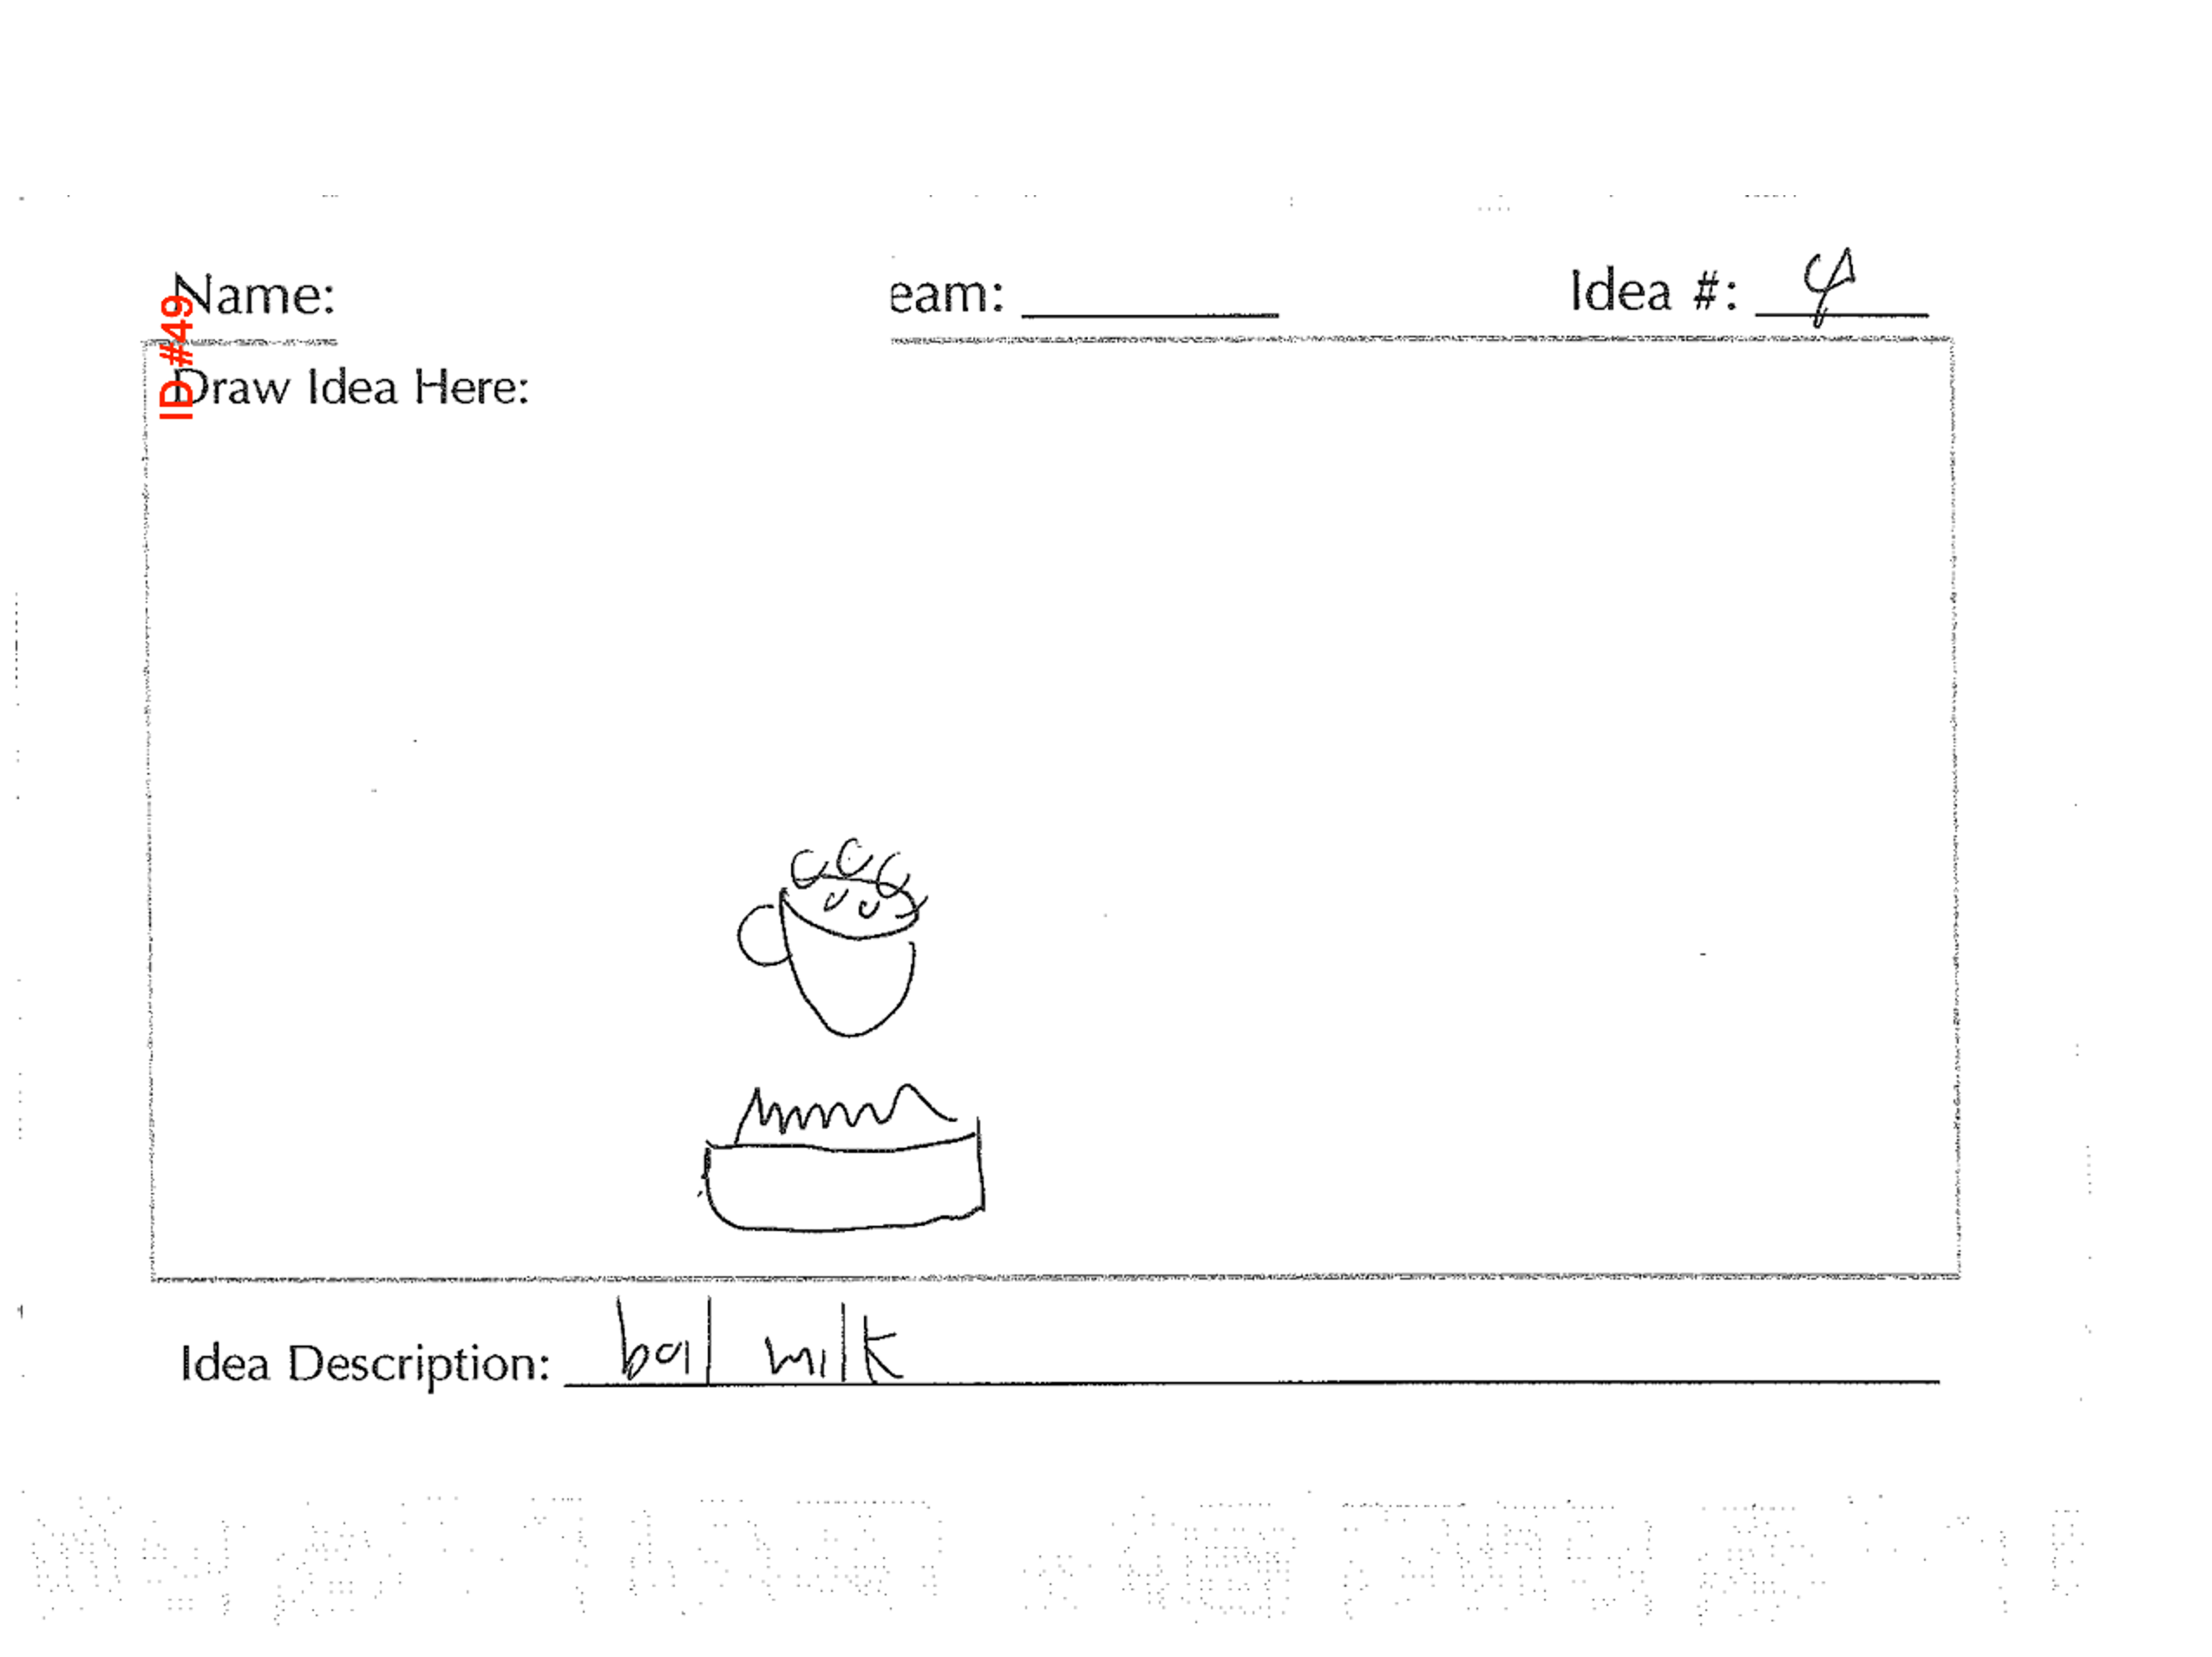 Name: eam: Idea #: 4
ID #49
Draw Idea Here:
Idea Description: boil milk